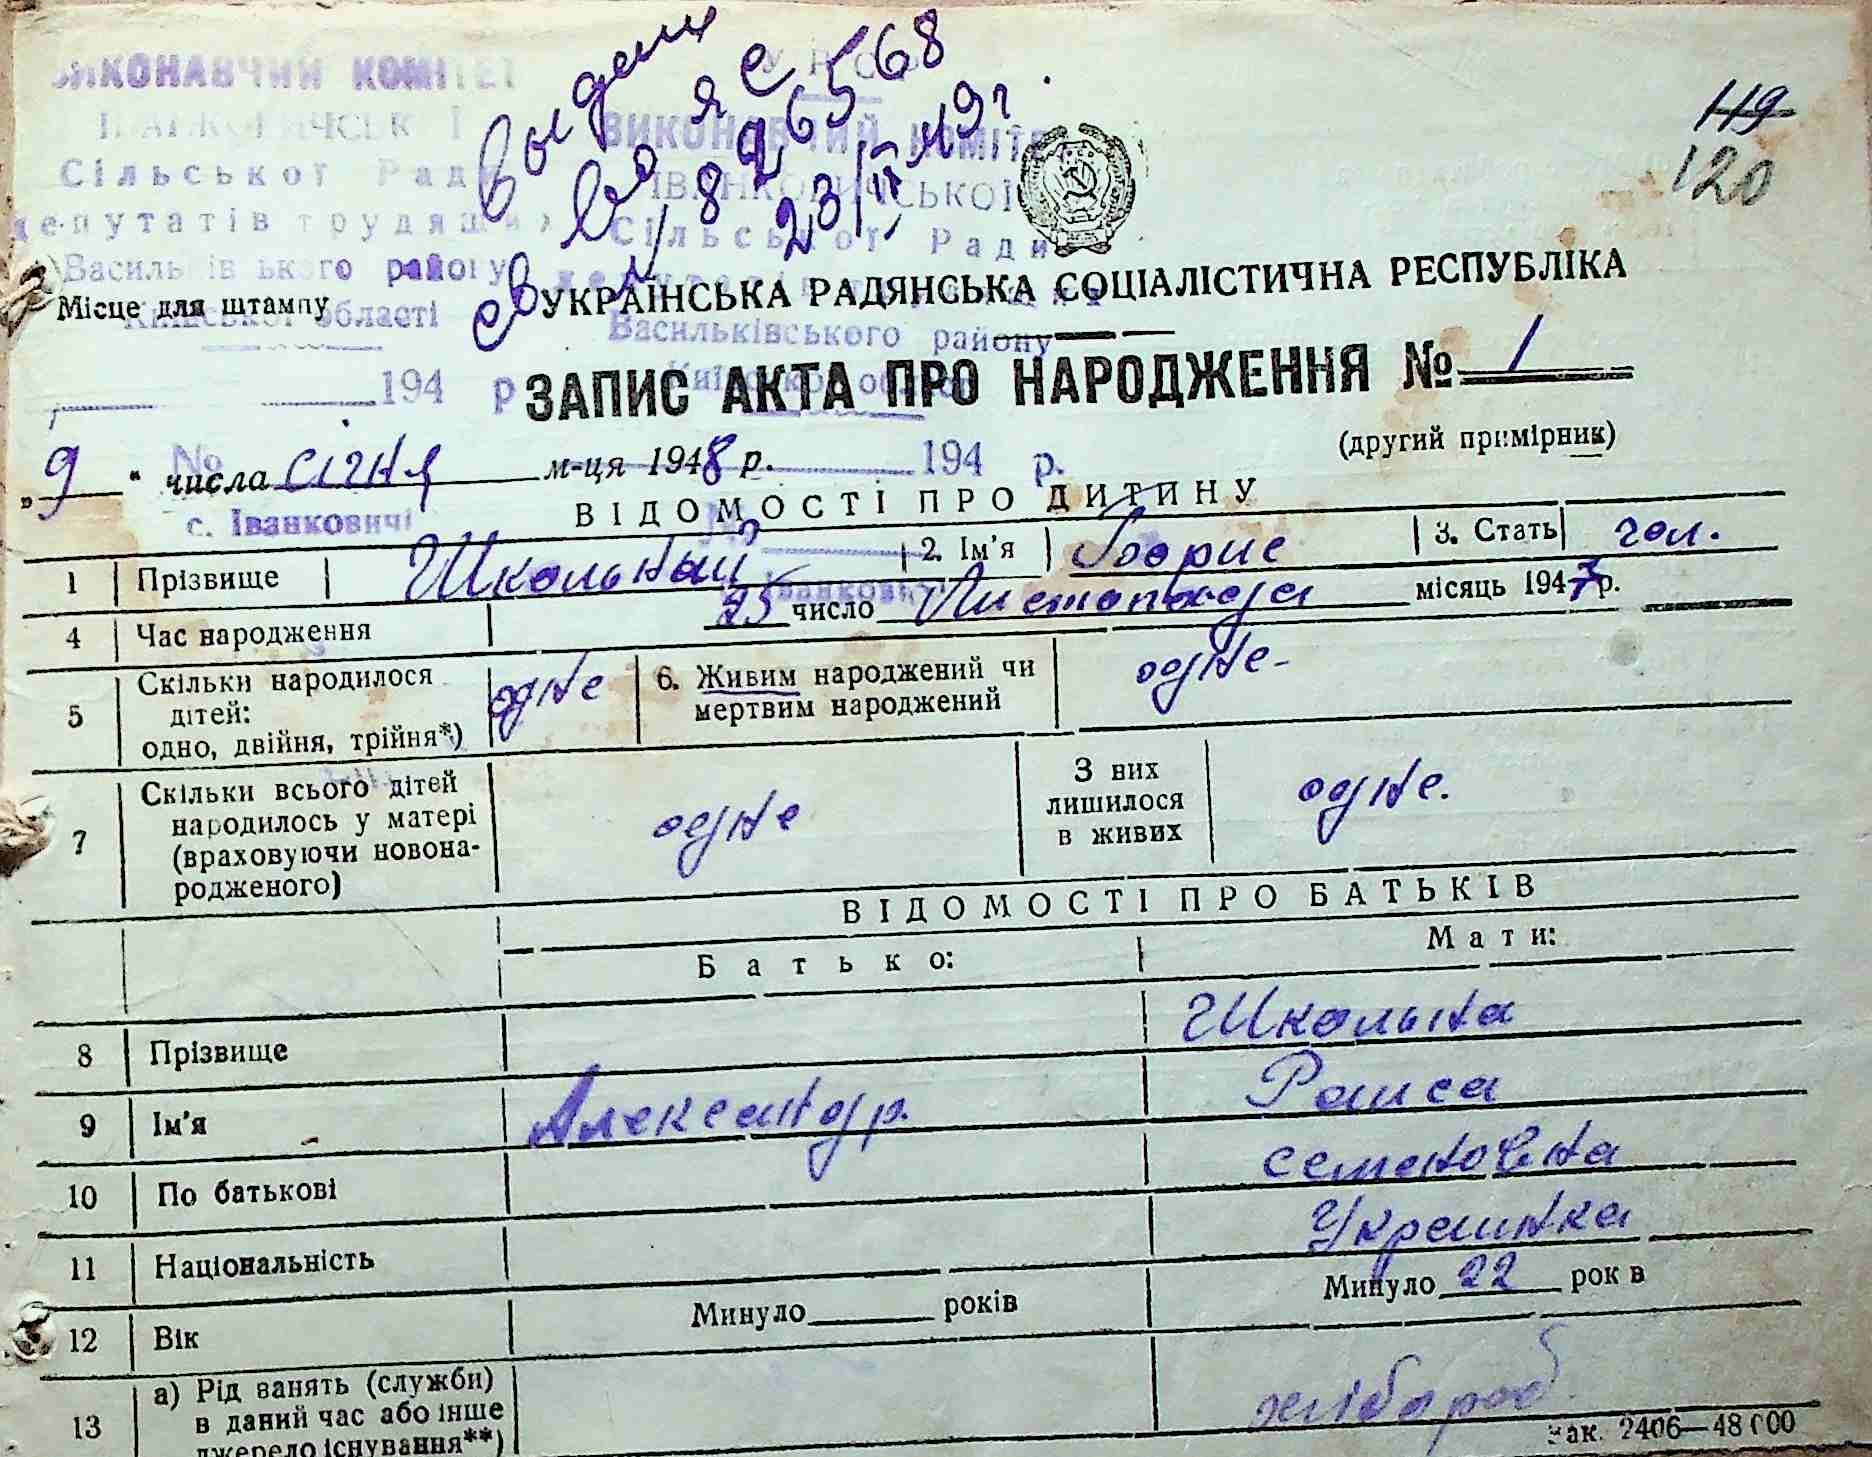 ВИКОНАВЧИЙ КОМІТЕТ
Сільської Ради
депутатів трудящих
Васильківського району
Київської області
194 р
№
с. Іванковичі
ВИКОНАВЧИЙ КОМІТЕТ
ІВАНКОВИЧСЬКОЇ
Сільської Ради
Васильківського району
Київської області
194 р.
№
Іванковичі
выдано
св
8 26568
23/II 49 г.
119
120
Місце для штампу
УКРАЇНСЬКА РАДЯНСЬКА СОЦІАЛІСТИЧНА РЕСПУБЛІКА
ЗАПИС АКТА ПРО НАРОДЖЕННЯ № 1
(другий примірник)
„9“ числа січня м-ця 1948 р.
ВІДОМОСТІ ПРО ДИТИНУ
1 Прізвище Школьный 2. Ім'я Борис 3. Стать чол.
4 Час народження 25 число Листопада місяць 1947 р.
5 Скільки народилося дітей: одно, двійня, трійня*) одне 6. Живим народжений чи мертвим народжений одне-
7 Скільки всього дітей народилось у матері (враховуючи новонародженого) одне З них лишилося в живих одне.
ВІДОМОСТІ ПРО БАТЬКІВ
Батько: Мати:
8 Прізвище Школьна
9 Ім'я Александр. Раиса
10 По батькові семеновна
11 Національність Украинка
12 Вік Минуло років Минуло 22 рок в
13 а) Рід занять (служби) в даний час або інше джерело існування**) хлібороб.
Зак. 2406—48000